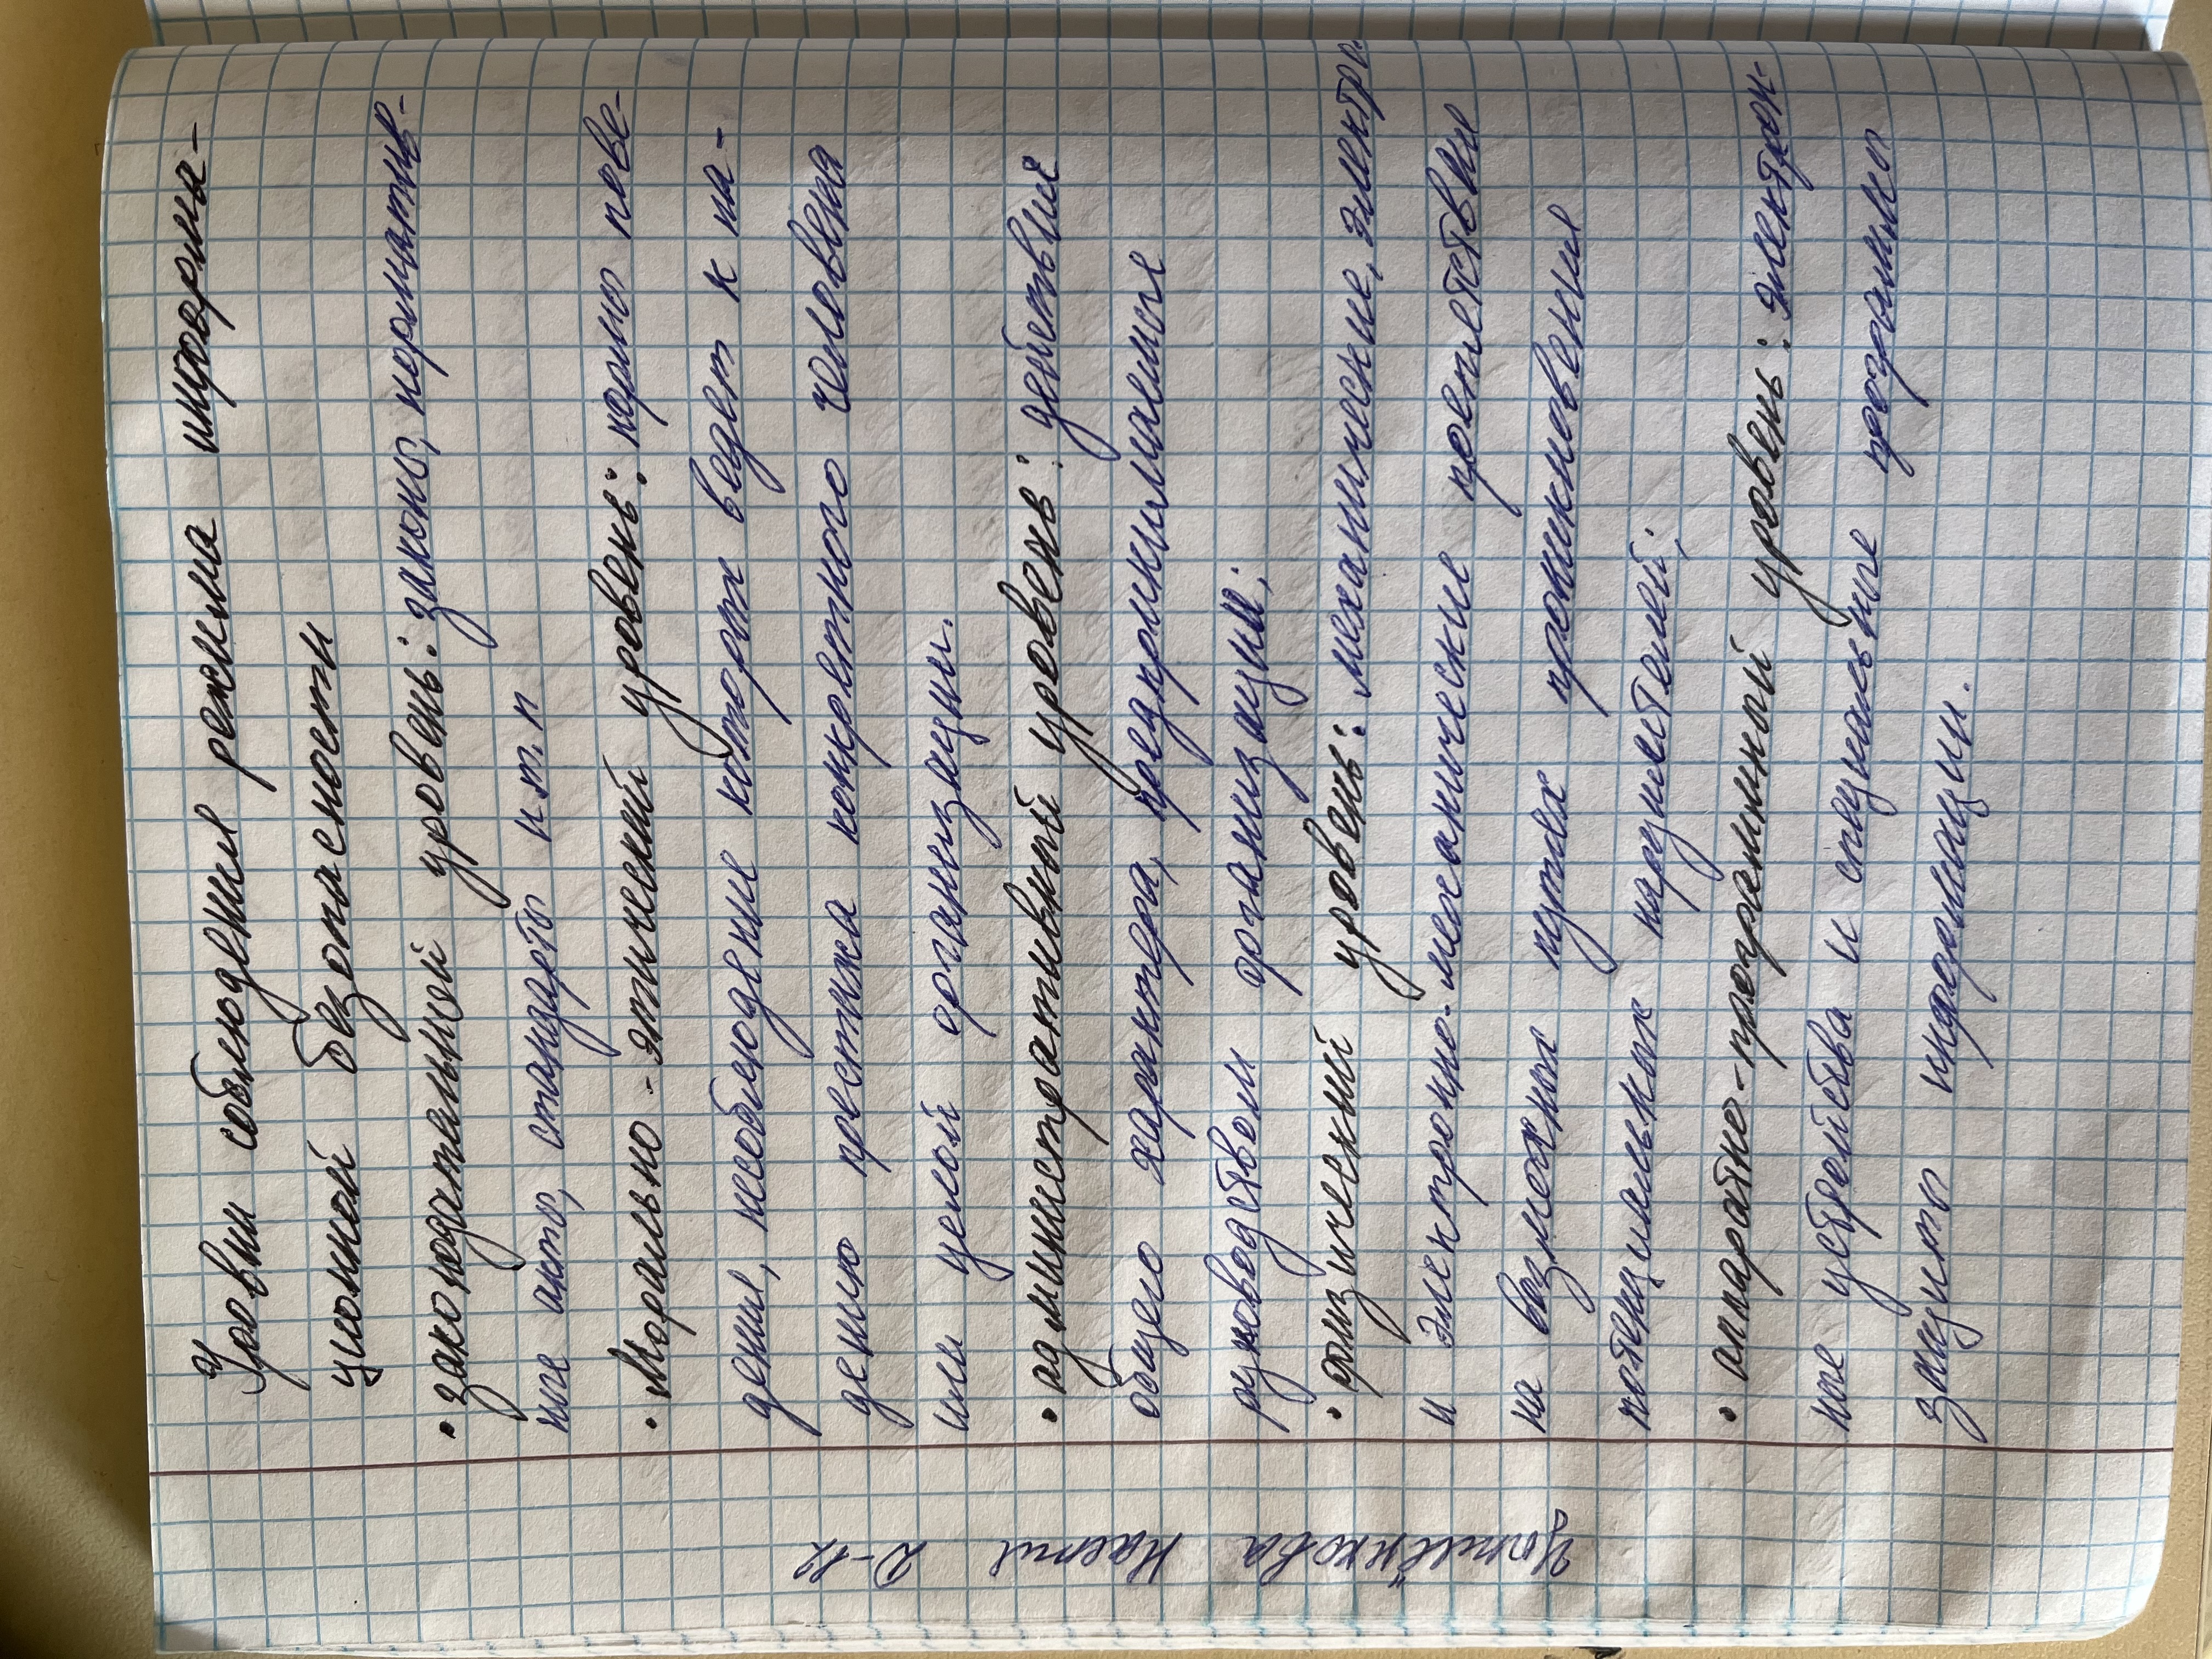 Уровни соблюдения режима информа-
ционной безопасности
• законодательной уровень: законо, норматив-
ные акто, стандарто и.т.п
• Морально-этический уровень: нормо пове-
дения, несоблюдение которох ведет к па-
дению престижа конкретного человека
или целой организации.
• административный уровень: действия
общего характера, предпринимаемые
руководством организации;
• физический уровень: механические, электро-
и электронно-механические препятствия
на возможных путях проникновения
потенциальнох нарушителей;
• аппаратно-программный уровень: электрон-
ное устройства и специальные программо
защито информации.
Настя Д-12